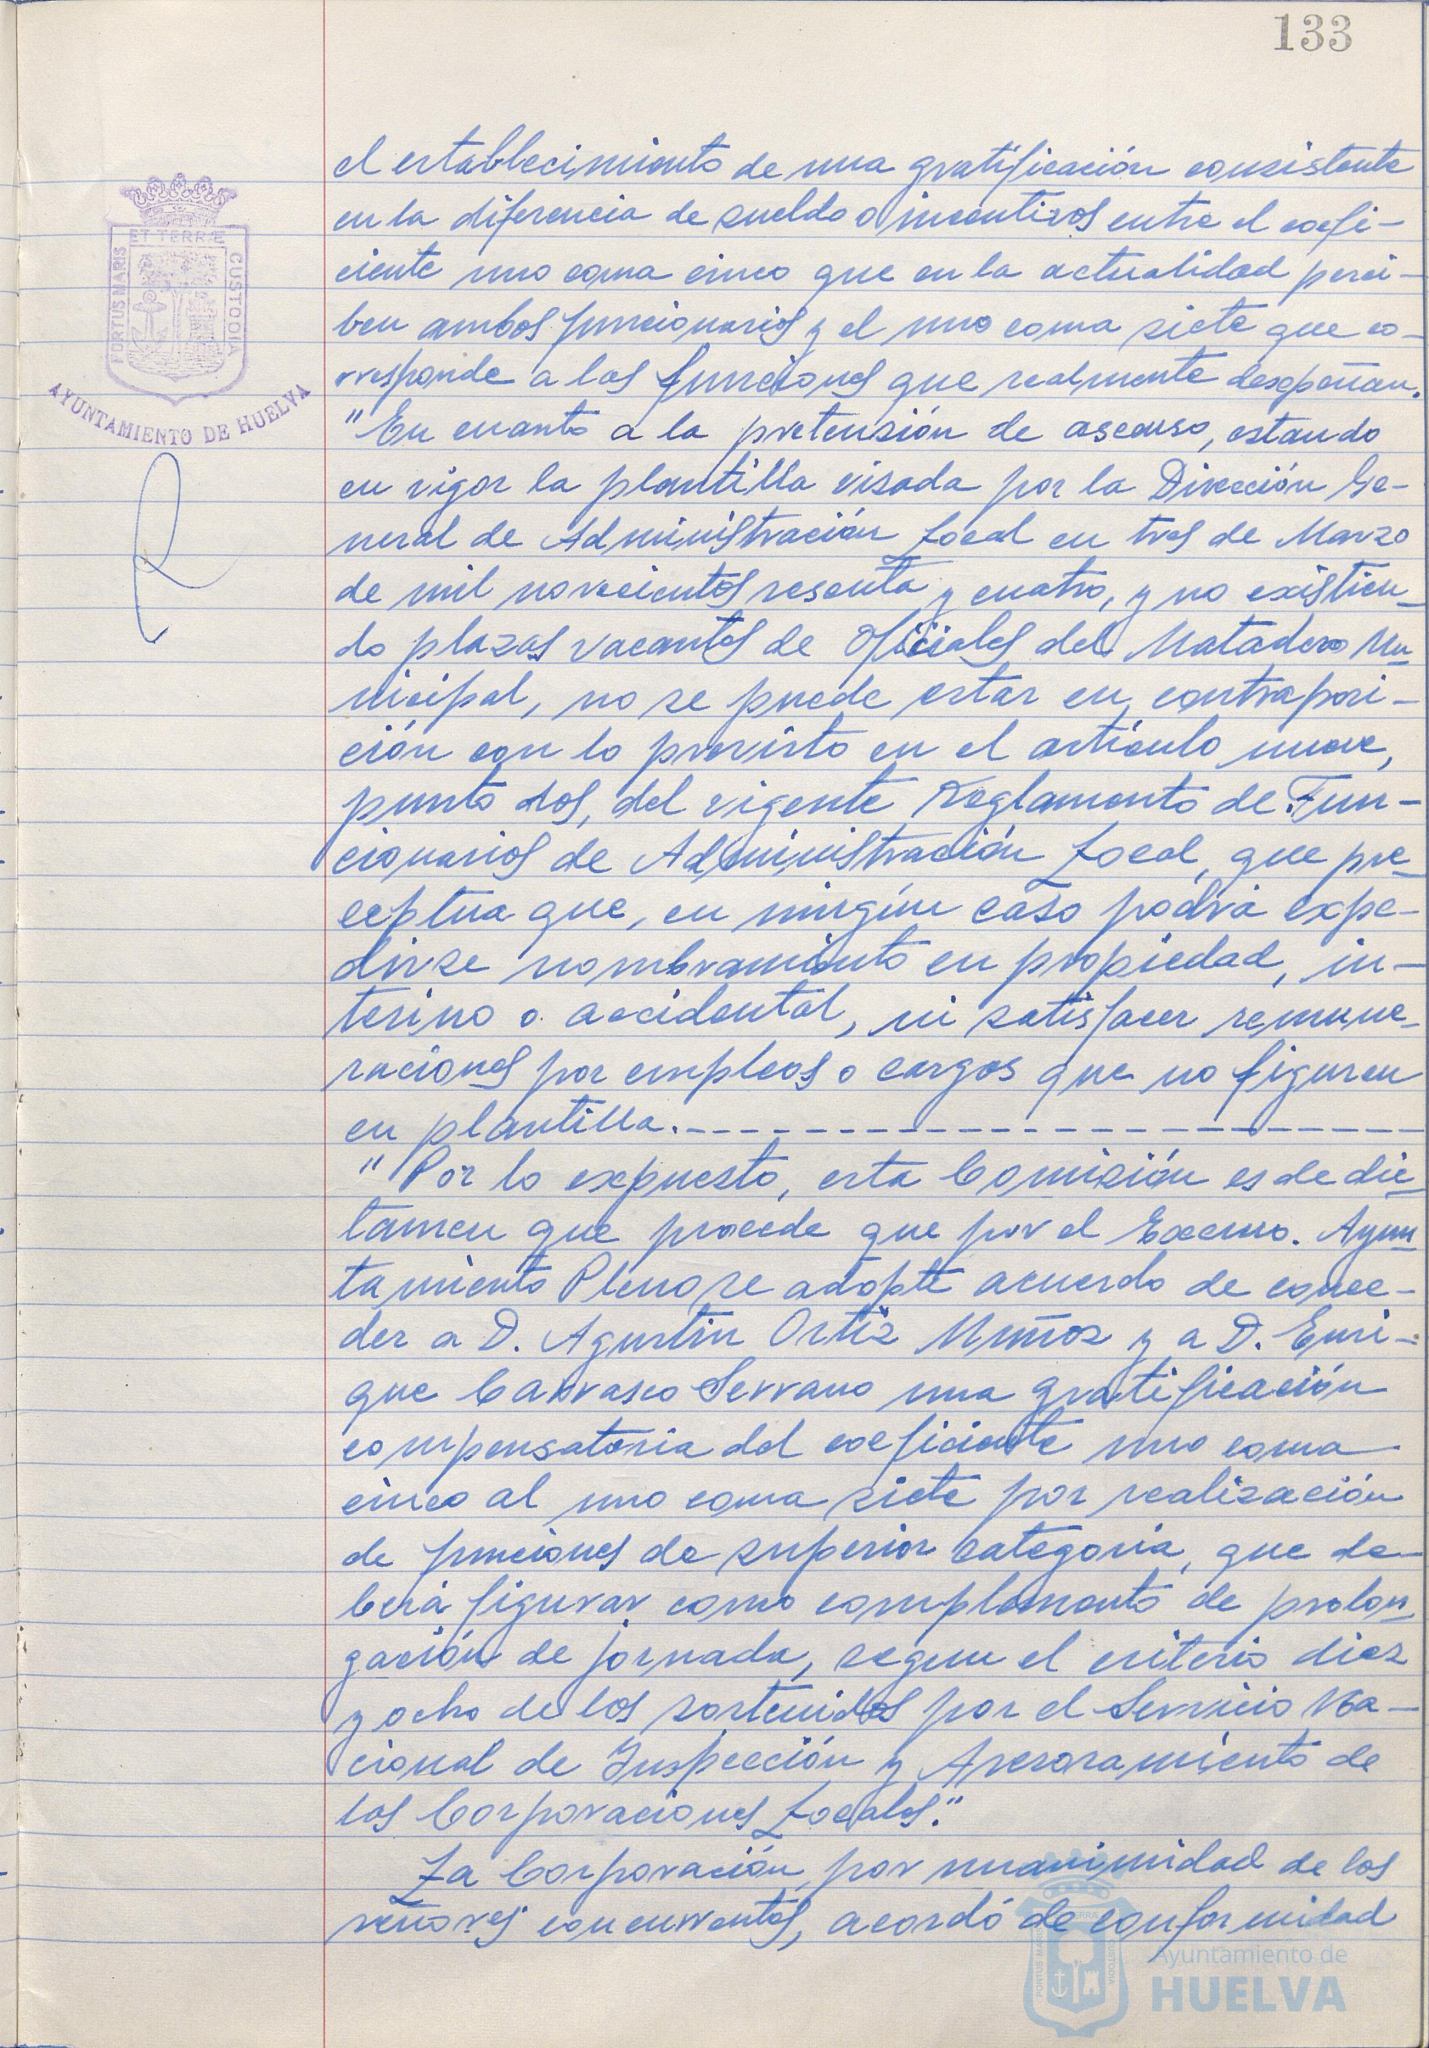 133
PORTUS MARIS
ET TERRÆ
CUSTODIA
AYUNTAMIENTO DE HUELVA
el establecimiento de una gratificación consistente
en la diferencia de sueldo o incentivos entre el coefi-
ciente uno coma cinco que en la actualidad perci-
ben ambos funcionarios y el uno coma siete que co-
rresponde a las funciones que realmente desepeñan.
"En cuanto a la pretensión de ascenso, estando
en vigor la plantilla visada por la Dirección Ge-
neral de Administración Local en tres de Marzo
de mil novecientos sesenta y cuatro, y no existien-
do plazas vacantes de Oficiales del Matadero Mu-
nicipal, no se puede estar en contraposi-
ción con lo previsto en el artículo nueve,
punto dos, del vigente Reglamento de Fun-
cionarios de Administración Local, que pre-
ceptua que, en ningún caso podrá expe-
dirse nombramiento en propiedad, in-
terino o accidental, ni satisfacer remune-
raciones por empleos o cargos que no figuren
en plantilla.-----------------------
"Por lo expuesto, esta Comisión es de dic-
tamen que procede que por el Excmo. Ayun-
tamiento Pleno se adopte acuerdo de conce-
der a D. Agustín Ortiz Muñoz y a D. Enri-
que Carrasco Serrano una gratificación
compensatoria del coeficiente uno coma
cinco al uno coma siete por realización
de funciones de superior categoría, que de-
berá figurar como complemento de prolon-
gación de jornada, segun el criterio diez
y ocho de los sostenidos por el Servicio Na-
cional de Inspección y Asesoramiento de
las Corporaciones Locales."
La Corporación, por unanimidad de los
señores concurrentes, acordó de conformidad
PORTUS MARIS
ET TERRÆ
CUSTODIA
Ayuntamiento de
HUELVA